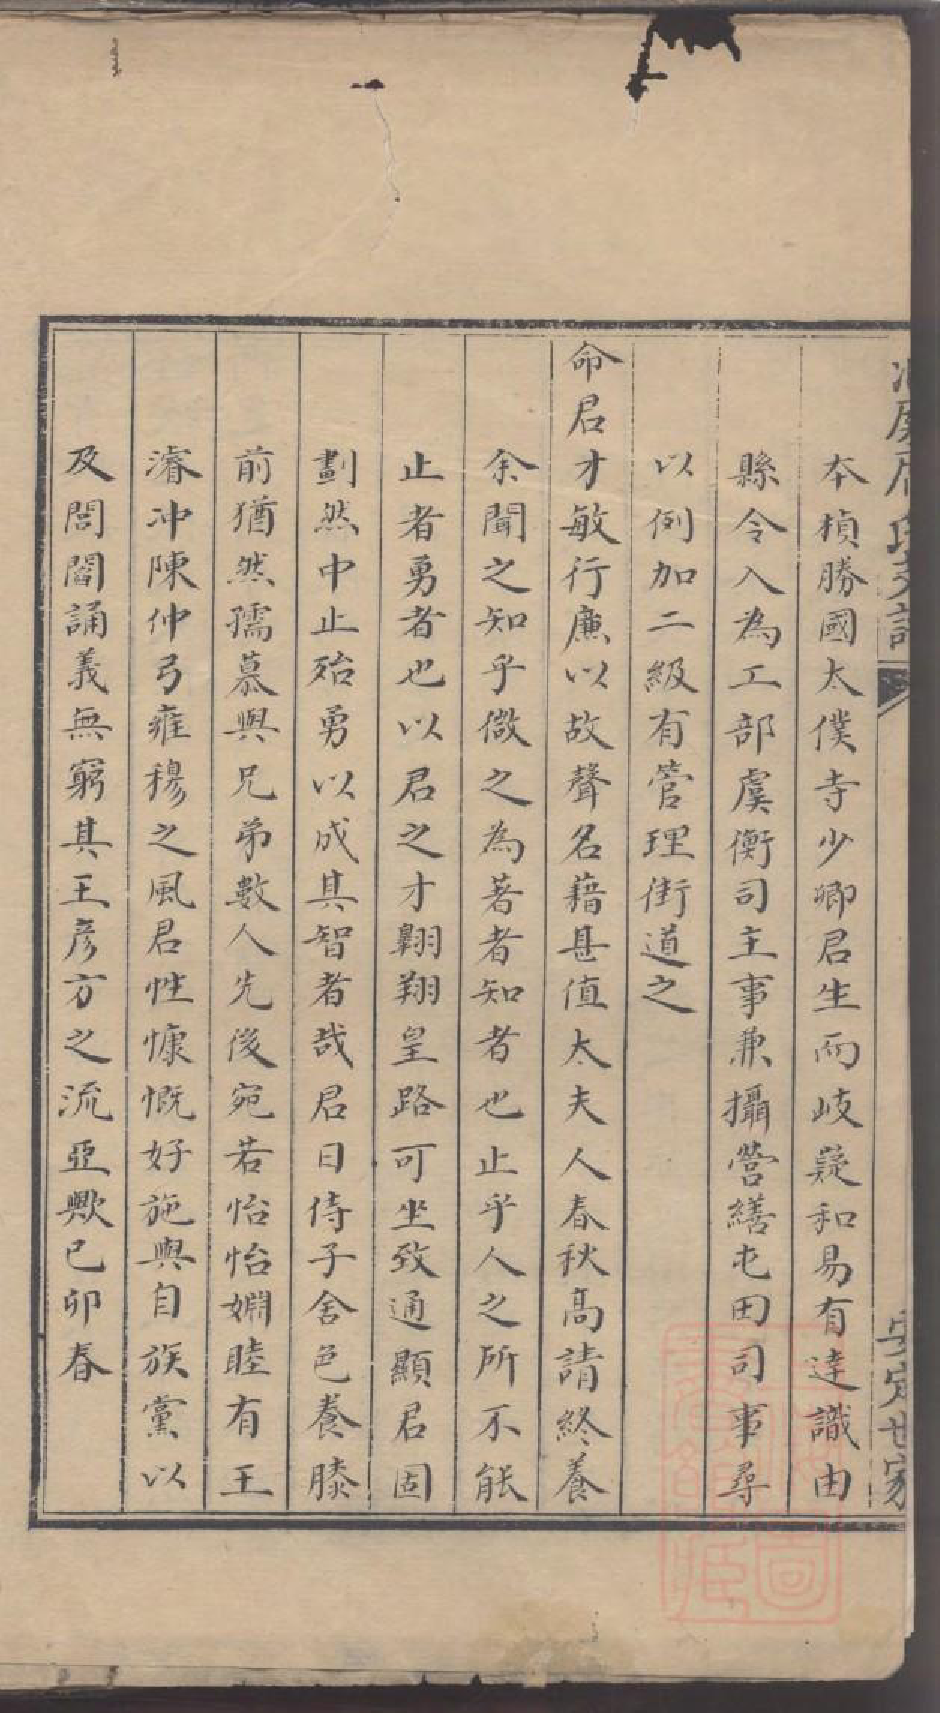 本楨勝國太僕寺少卿君生而岐嶷和易有達識由
縣令入為工部虞衡司主事兼攝營繕屯田司事尋
以例加二級有管理街道之
命君才敏行廉以故聲名藉甚值太夫人春秋高請終養
余聞之知乎微之為著者知者也止乎人之所不能
止者勇者也以君之才翱翔皇路可坐致通顯君固
劃然中止殆勇以成其智者哉君日侍子舍色養膝
前猶然孺慕與兄弟數人先後宛若怡怡婣睦有王
濬冲陳仲弓雍穆之風君性慷慨好施與自族黨以
及閭閻誦義無窮其王彥方之流亞歟己卯春
安定世家